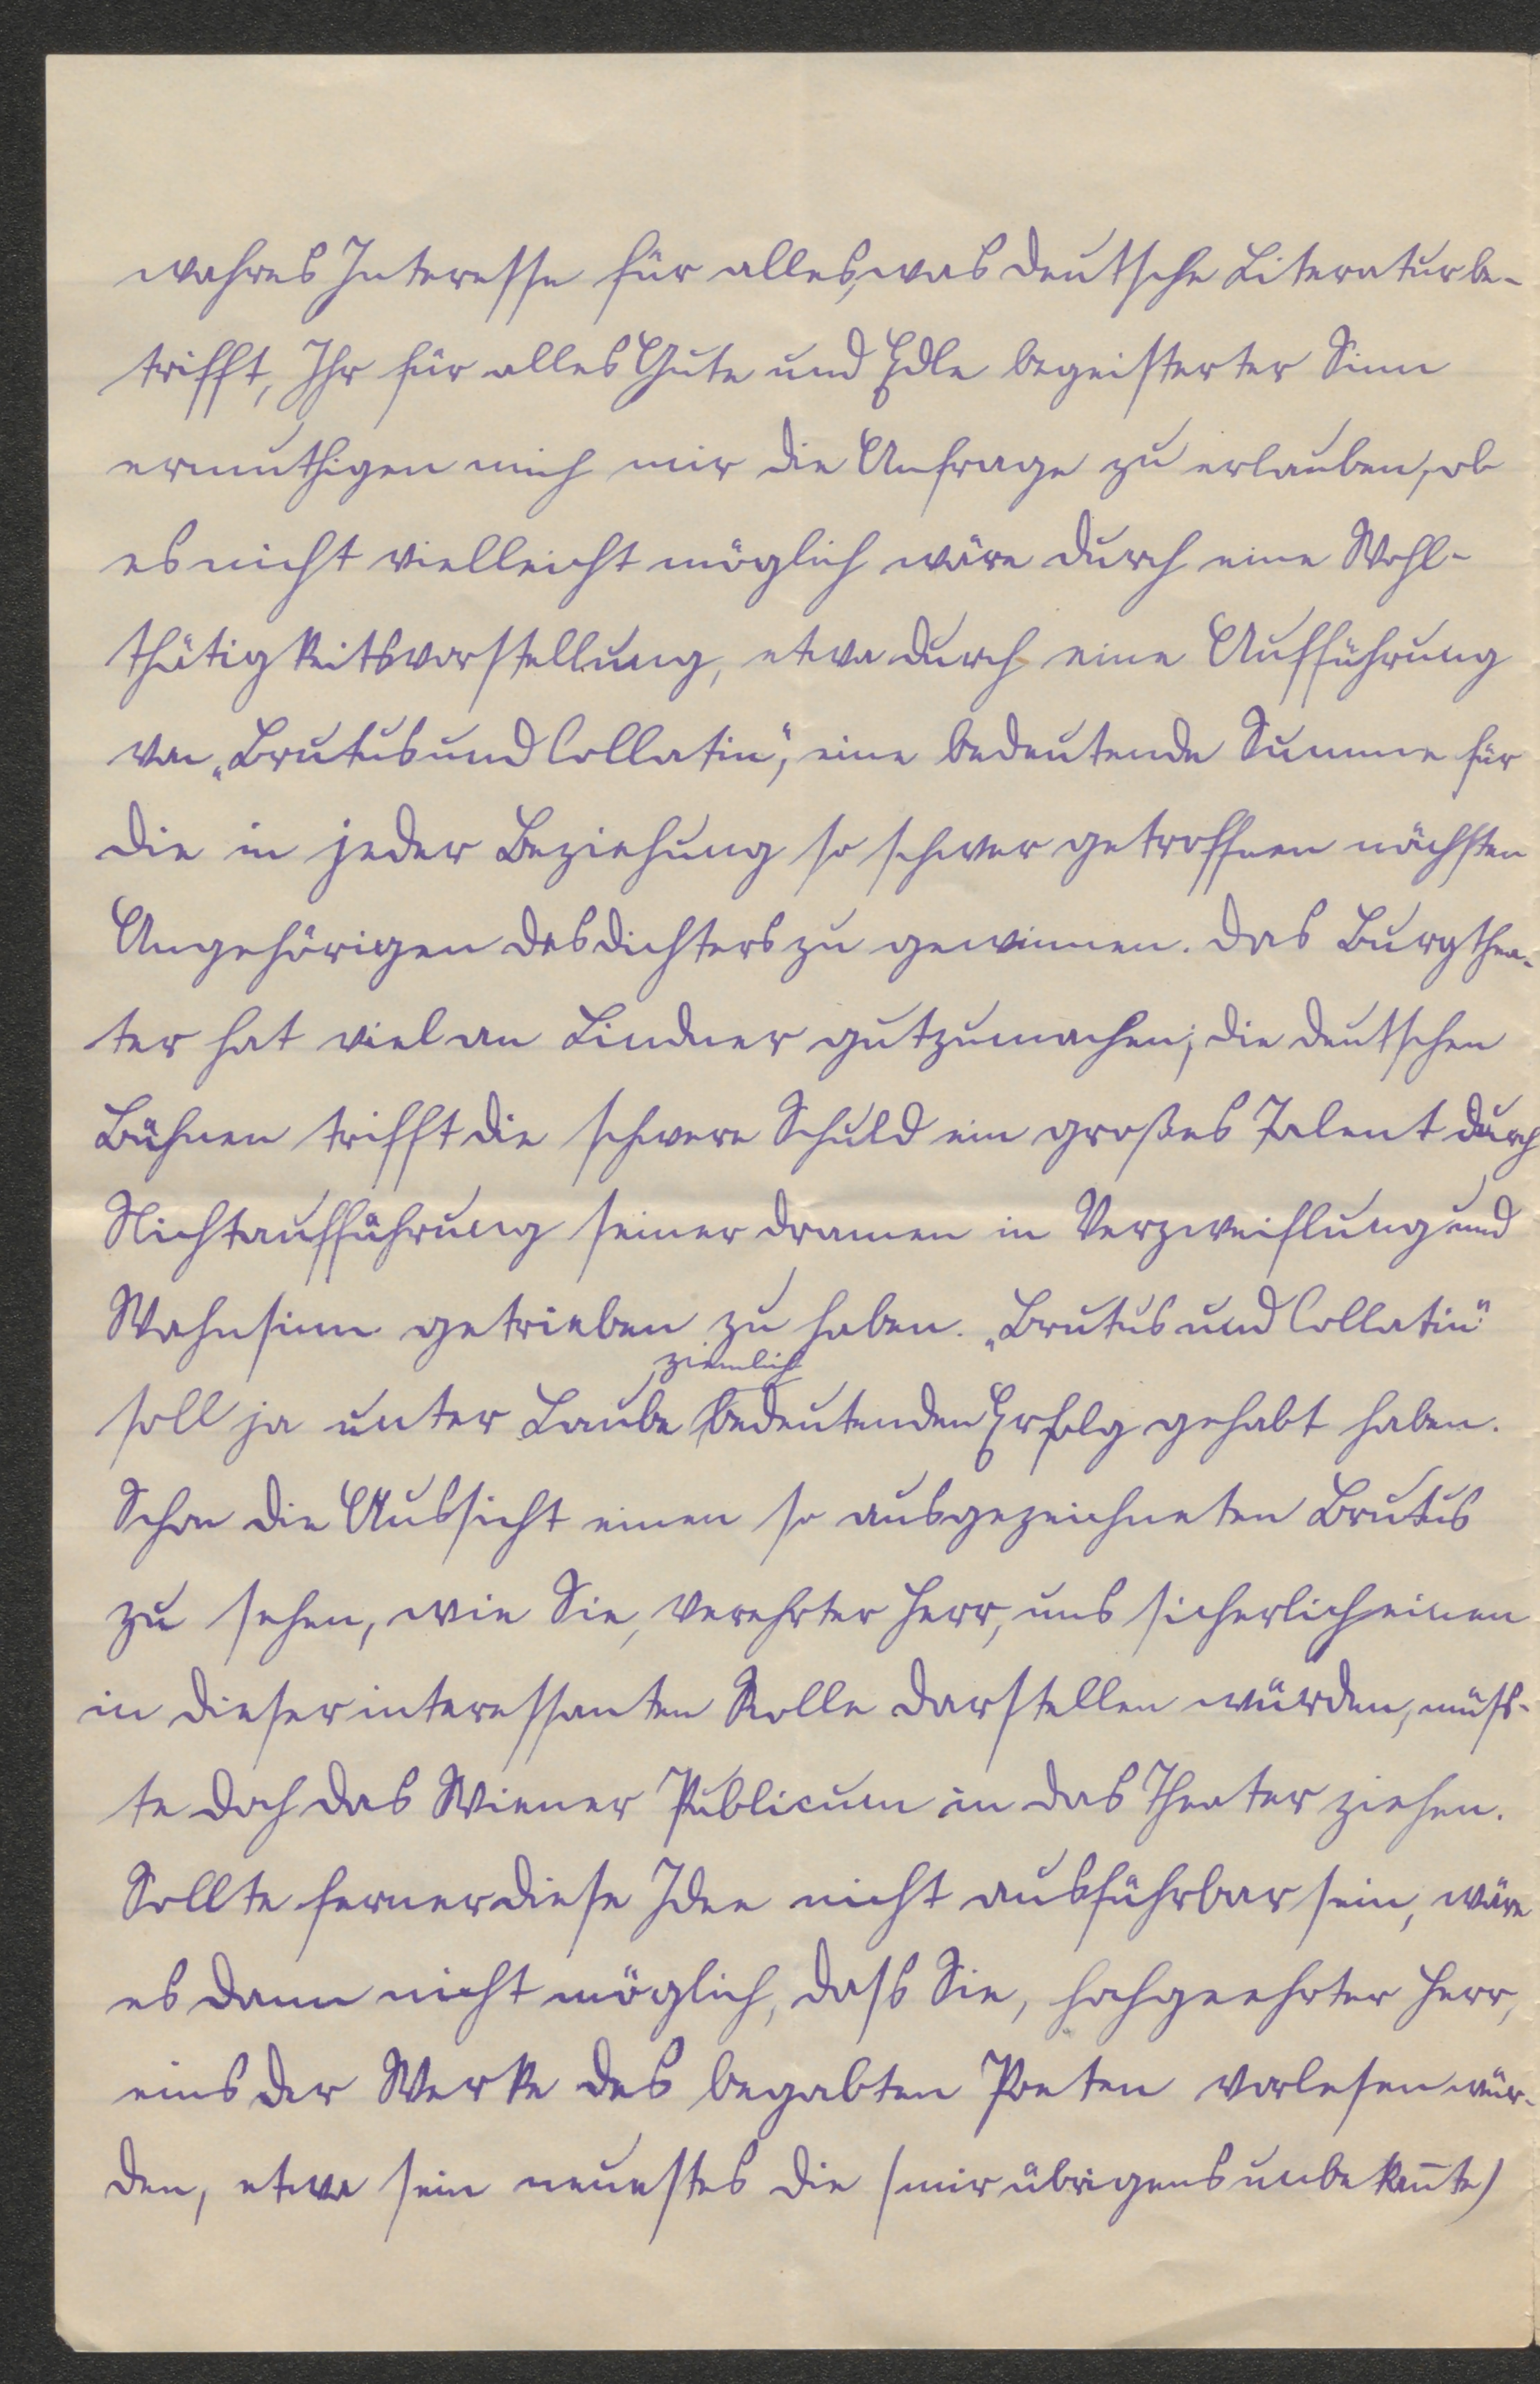 wahres Interesse für alles, was deutsche Literatur be-
trifft, Ihr für alles Gute und Edle begeisterter Sinn
ermuthigen mich mir die Anfrage zu erlauben, ob
es nicht vielleicht möglich wäre durch eine Wohl-
thätigkeitsvorstellung, etwa durch eine Aufführung
von „Brutus und Collatin“, eine bedeutende Summe für
die in jeder Beziehung so schwer getroffnen nächsten
Angehörigen des Dichters zu gewinnen. Das Burgthea-
ter hat viel an Lindner gutzumachen; die deutschen
Bühnen trifft die schwere Schuld ein großes Talent durch
Nichtaufführung seiner Dramen in Verzweiflung und
Wahnsinn getrieben zu haben. „Brutus und Collatin“
soll ja unter Laube ziemlich bedeutenden Erfolg gehabt haben.
Schon die Aussicht einen so ausgezeichneten Brutus
zu sehen, wie Sie, verehrter Herr, uns sicherlich einen
in dieser interessanten Rolle darstellen würden, müss-
te doch das Wiener Publicum in das Theater ziehen.
Sollte ferner diese Idee nicht ausführbar sein, wäre
es dann nicht möglich, dass Sie, hochgeehrter Herr,
eins der Werke des begabten Poeten vorlesen wür-
den, etwa sein neuestes die (mir übrigens unbekan̄te)